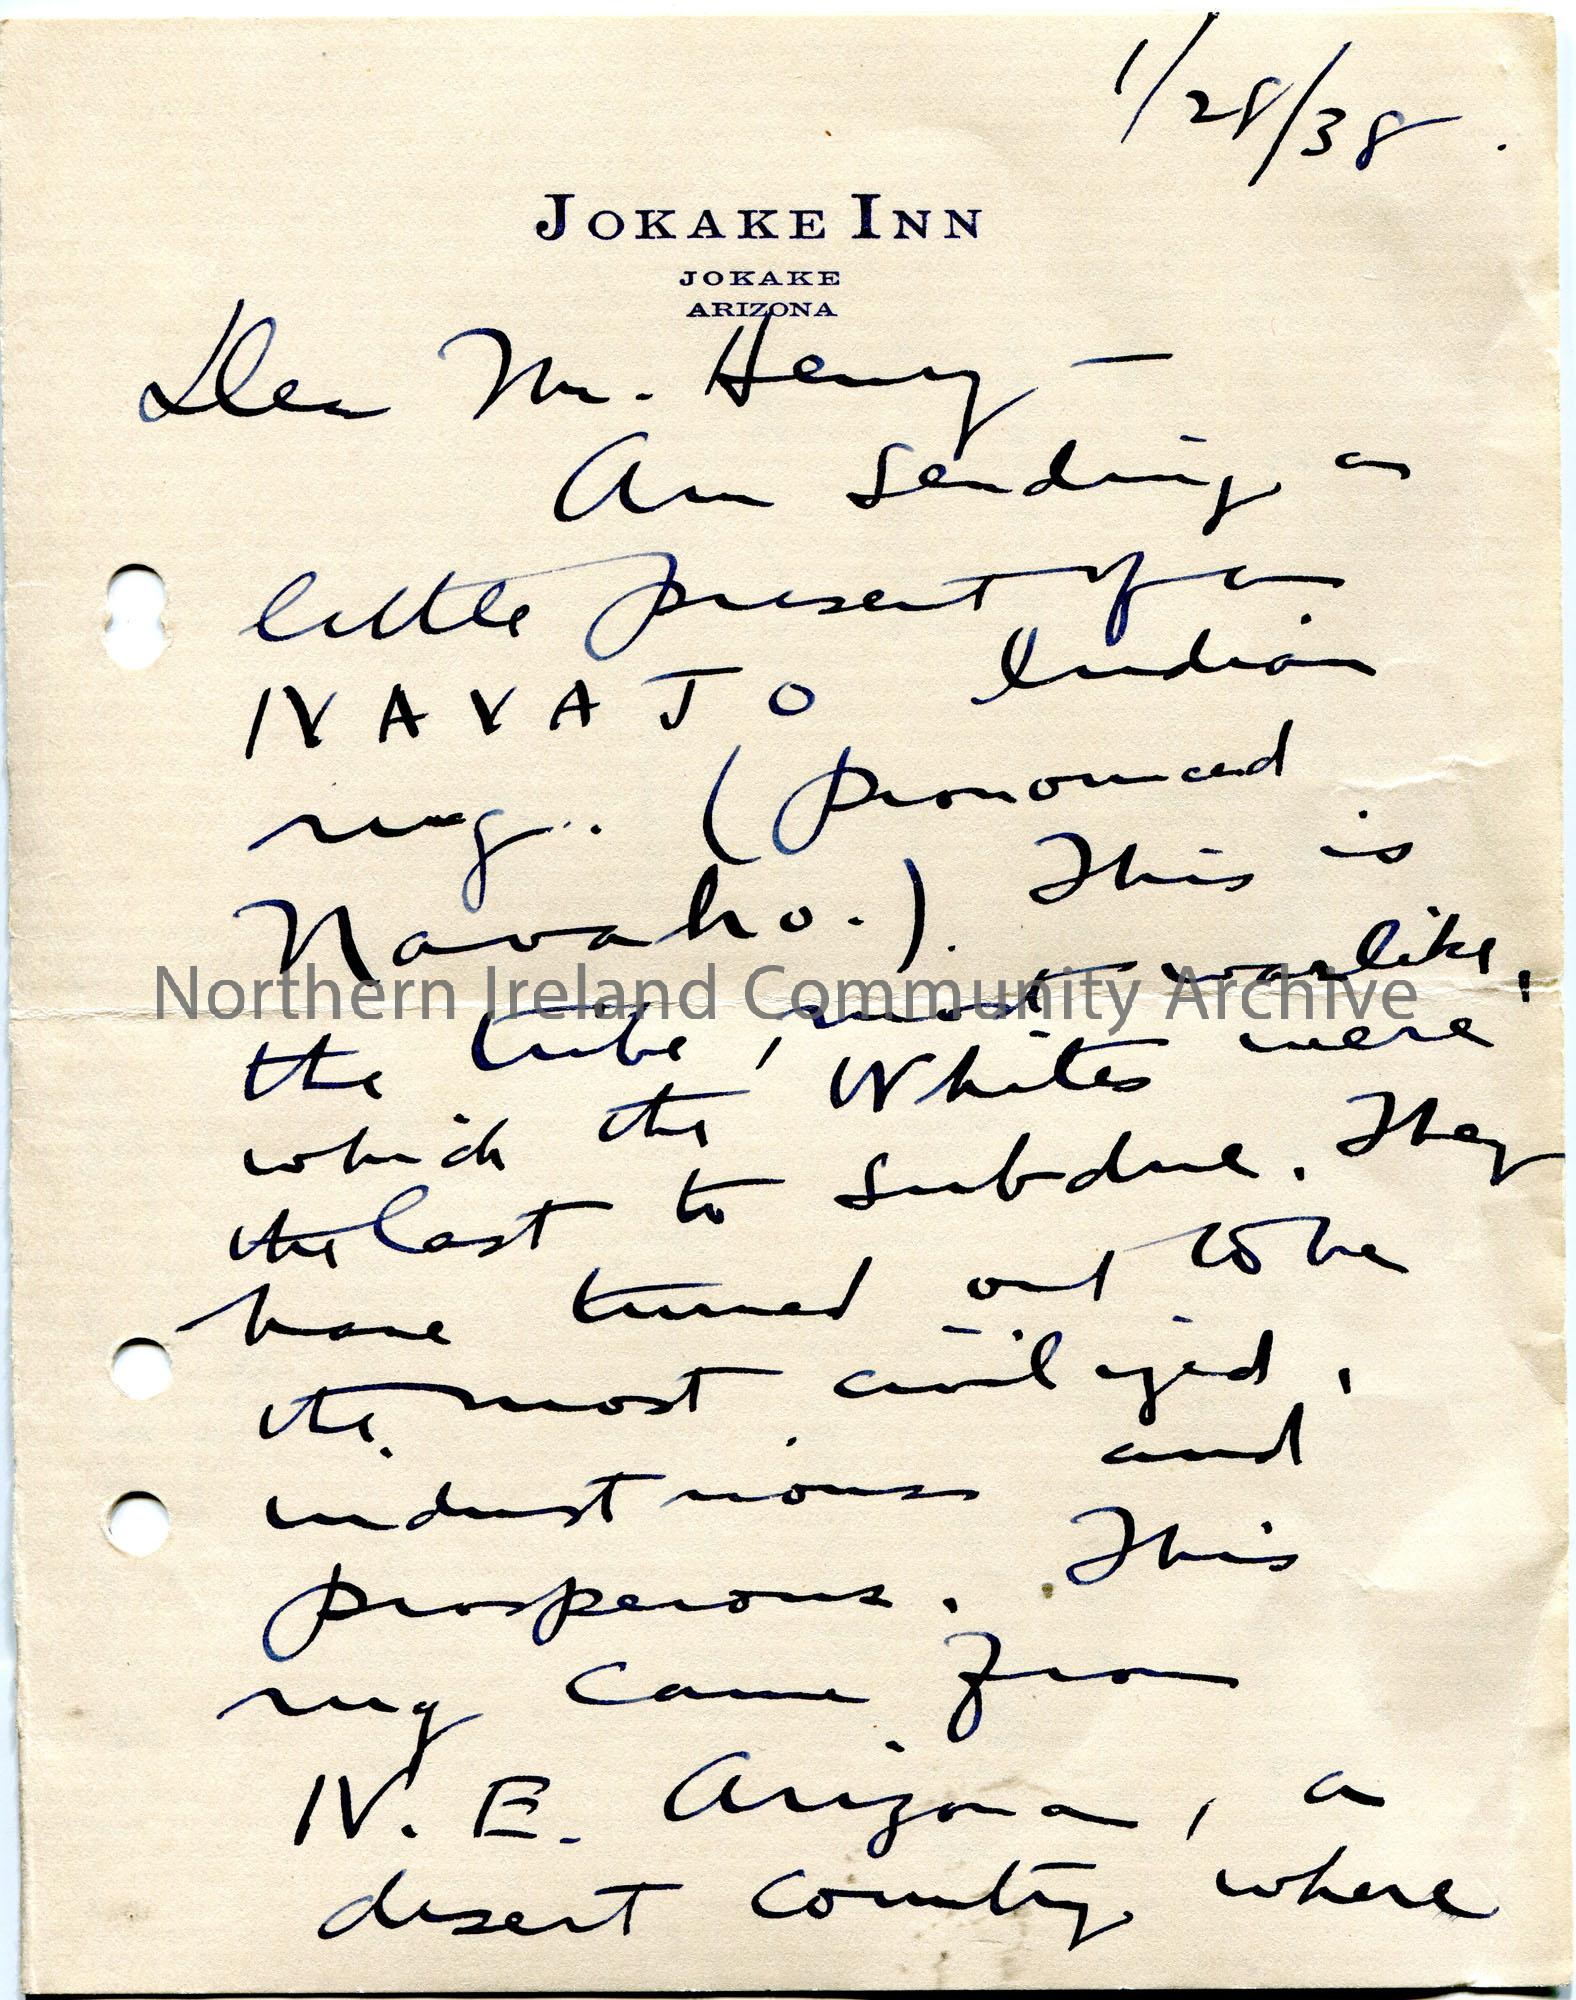 1/28/38.
JOKAKE INN
JOKAKE
ARIZONA
Dear Mr. Henry —
Am sending a
little present of a
NAVAJO Indian
rug. (pronounced
Navaho.). This is
Northern Ireland Community Archive
the tribe, most warlike,
which the Whites were
the last to subdue. They
have turned out to be
the most civilized,
industrious and
prosperous. This
rug came from
N. E. Arizona, a
desert country where